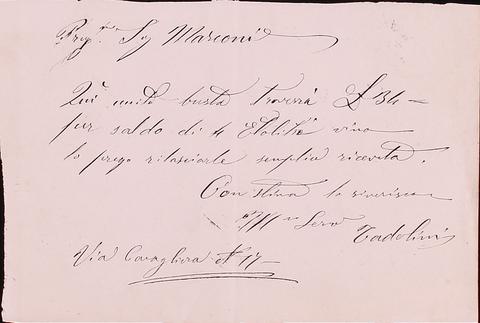 Preg.mo Sig Marconi
Qui unito busta troverà £ 34 =
per saldo di 4 Etolitri vino
lo prego rilasciarle semplice ricevuta.
Con stima la riverisco
Serv Tadolini
Via Cavaliera N 17 =